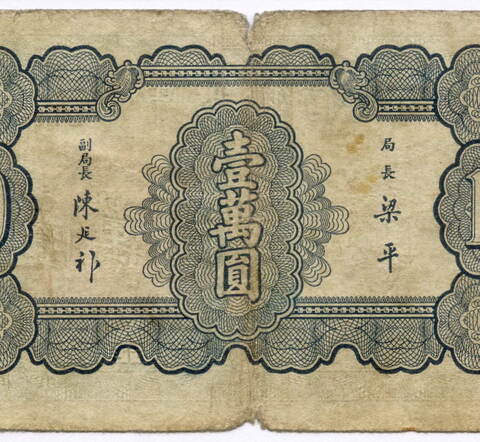 局長
梁平
壹萬圓
副局長
陳延祚